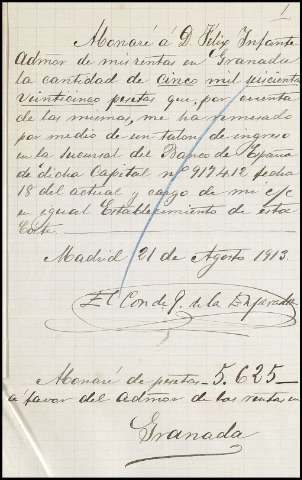 1
Abonaré á D. Felix Infante
Admor de mis rentas en Granada
la cantidad de cinco mil seiscientas
veinticinco pesetas que, por cuenta
de las mismas, me ha remesado
por medio de un talon de ingreso
en la Sucursal del Banco de España
de dicha Capital nº 917.412 fecha
18 del actual y cargo de mi c/c
en igual Establecimiento de esta
Corte.
Madrid 21 de Agosto 1913.
El Conde de la
Abonaré de pesetas 5.625
á favor del Admor de las rentas en
Granada